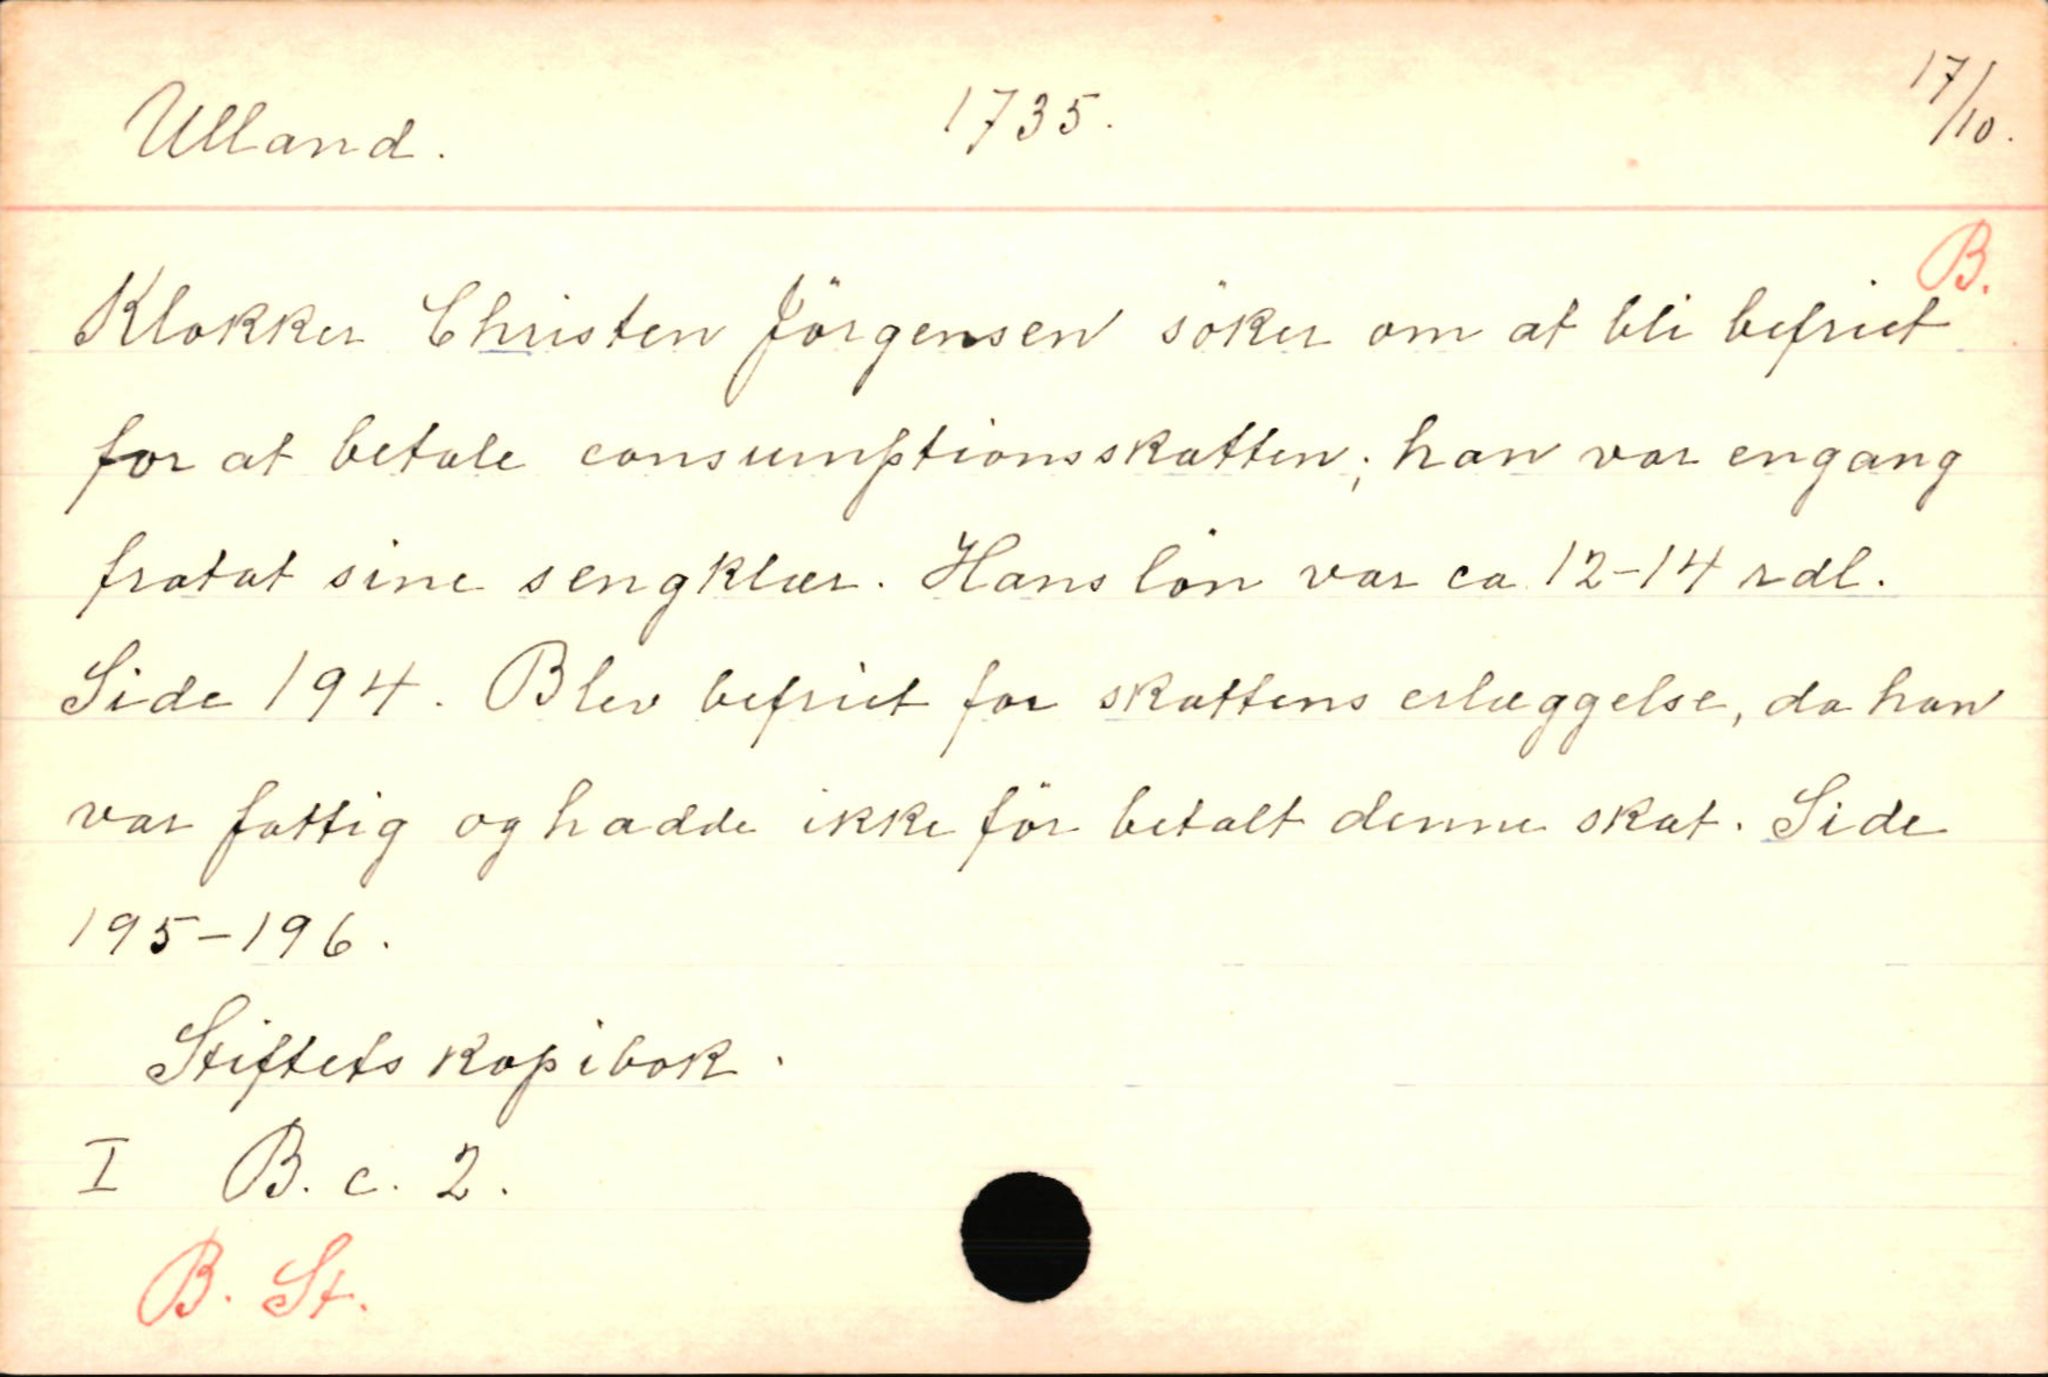 Ulland. 1735. 17/10.
B.
Klokker Christen Jörgensen söker om at bli befriet
for at betale consumptionsskatten; han var engang
fratat sine sengklær. Hans lön var ca 12-14 rdl.
Side 194. Blev befriet for skattens erlæggelse, da han
var fattig og hadde ikke för betalt denne skat. Side
195-196.
Stiftets kopibok.
I B. c. 2.
B. St.